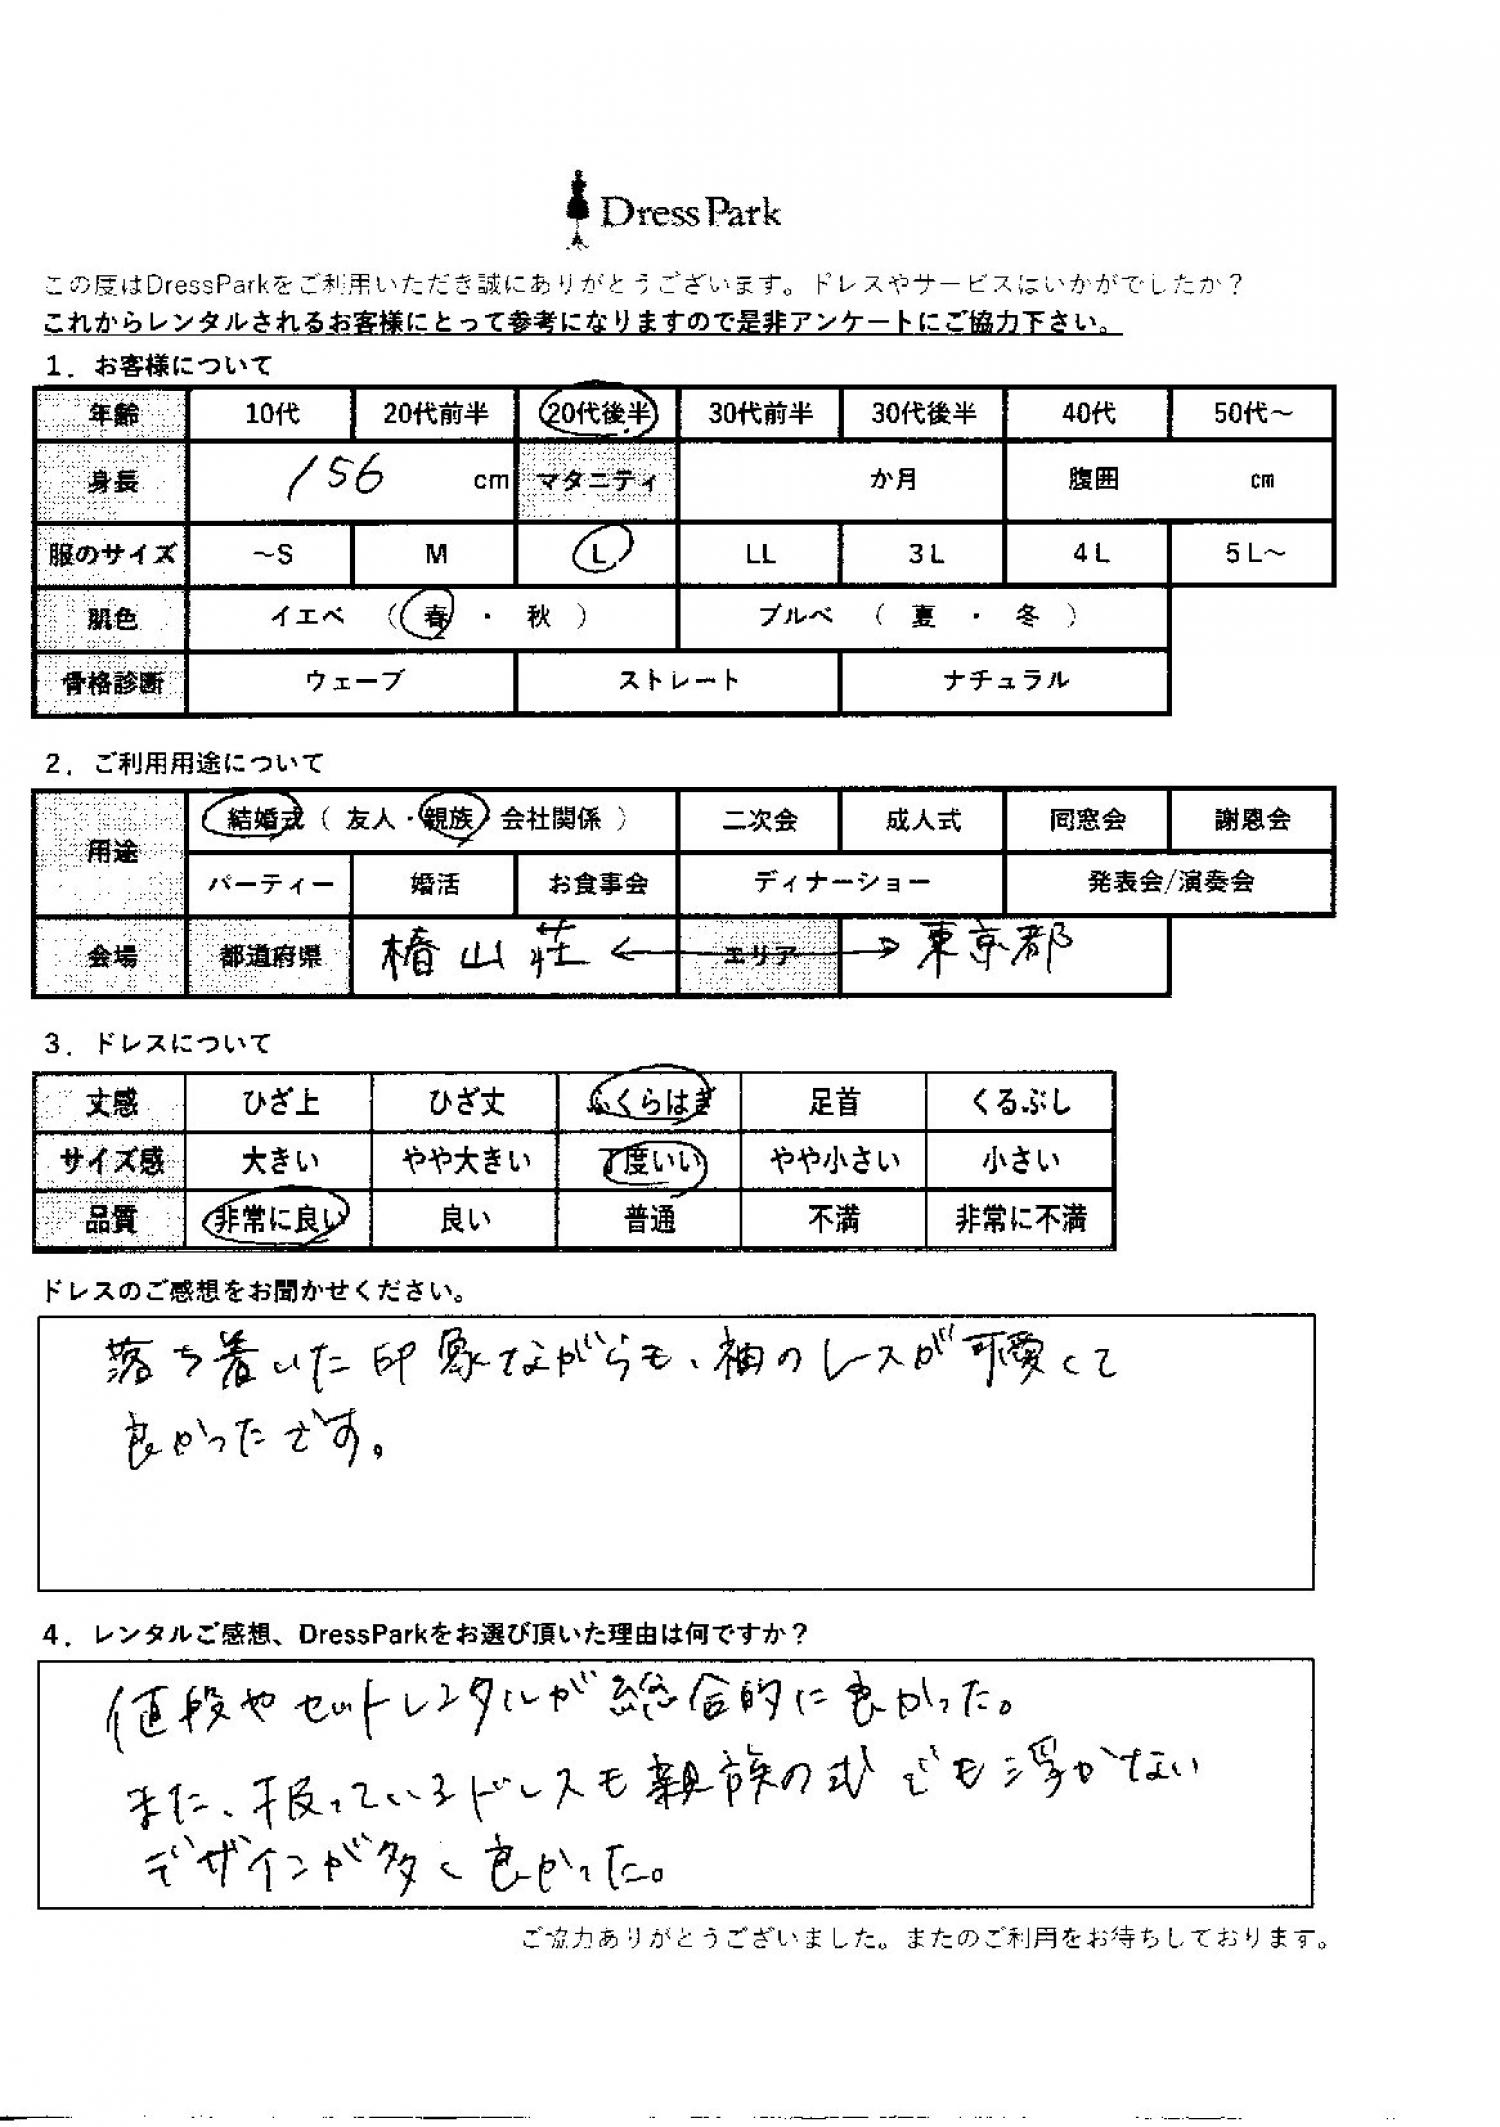 Dress Park
この度はDressParkをご利用いただき誠にありがとうございます。ドレスやサービスはいかがでしたか？
これからレンタルされるお客様にとって参考になりますので是非アンケートにご協力下さい。
1．お客様について
年齢 10代 20代前半 20代後半 30代前半 30代後半 40代 50代～
身長 156 cm マタニティ か月 腹囲 cm
服のサイズ ～S M L LL 3L 4L 5L～
肌色 イエベ （ 春 ・ 秋 ） ブルベ （ 夏 ・ 冬 ）
骨格診断 ウェーブ ストレート ナチュラル
2．ご利用用途について
用途 結婚式（ 友人・親族・会社関係 ） 二次会 成人式 同窓会 謝恩会
パーティー 婚活 お食事会 ディナーショー 発表会/演奏会
会場 都道府県 椿山荘 ←エリア→ 東京都
3．ドレスについて
丈感 ひざ上 ひざ丈 ふくらはぎ 足首 くるぶし
サイズ感 大きい やや大きい 丁度いい やや小さい 小さい
品質 非常に良い 良い 普通 不満 非常に不満
ドレスのご感想をお聞かせください。
落ち着いた印象ながらも、袖のレースが可愛くて
良かったです。
4．レンタルご感想、DressParkをお選び頂いた理由は何ですか？
値段やセットレンタルが総合的に良かった。
また、扱っているドレスも親族の式でも浮かない
デザインが多く良かった。
ご協力ありがとうございました。またのご利用をお待ちしております。